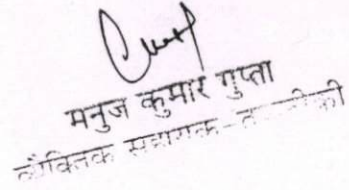 मनुज कुमार गुप्ता
वैयक्तिक सहायक -